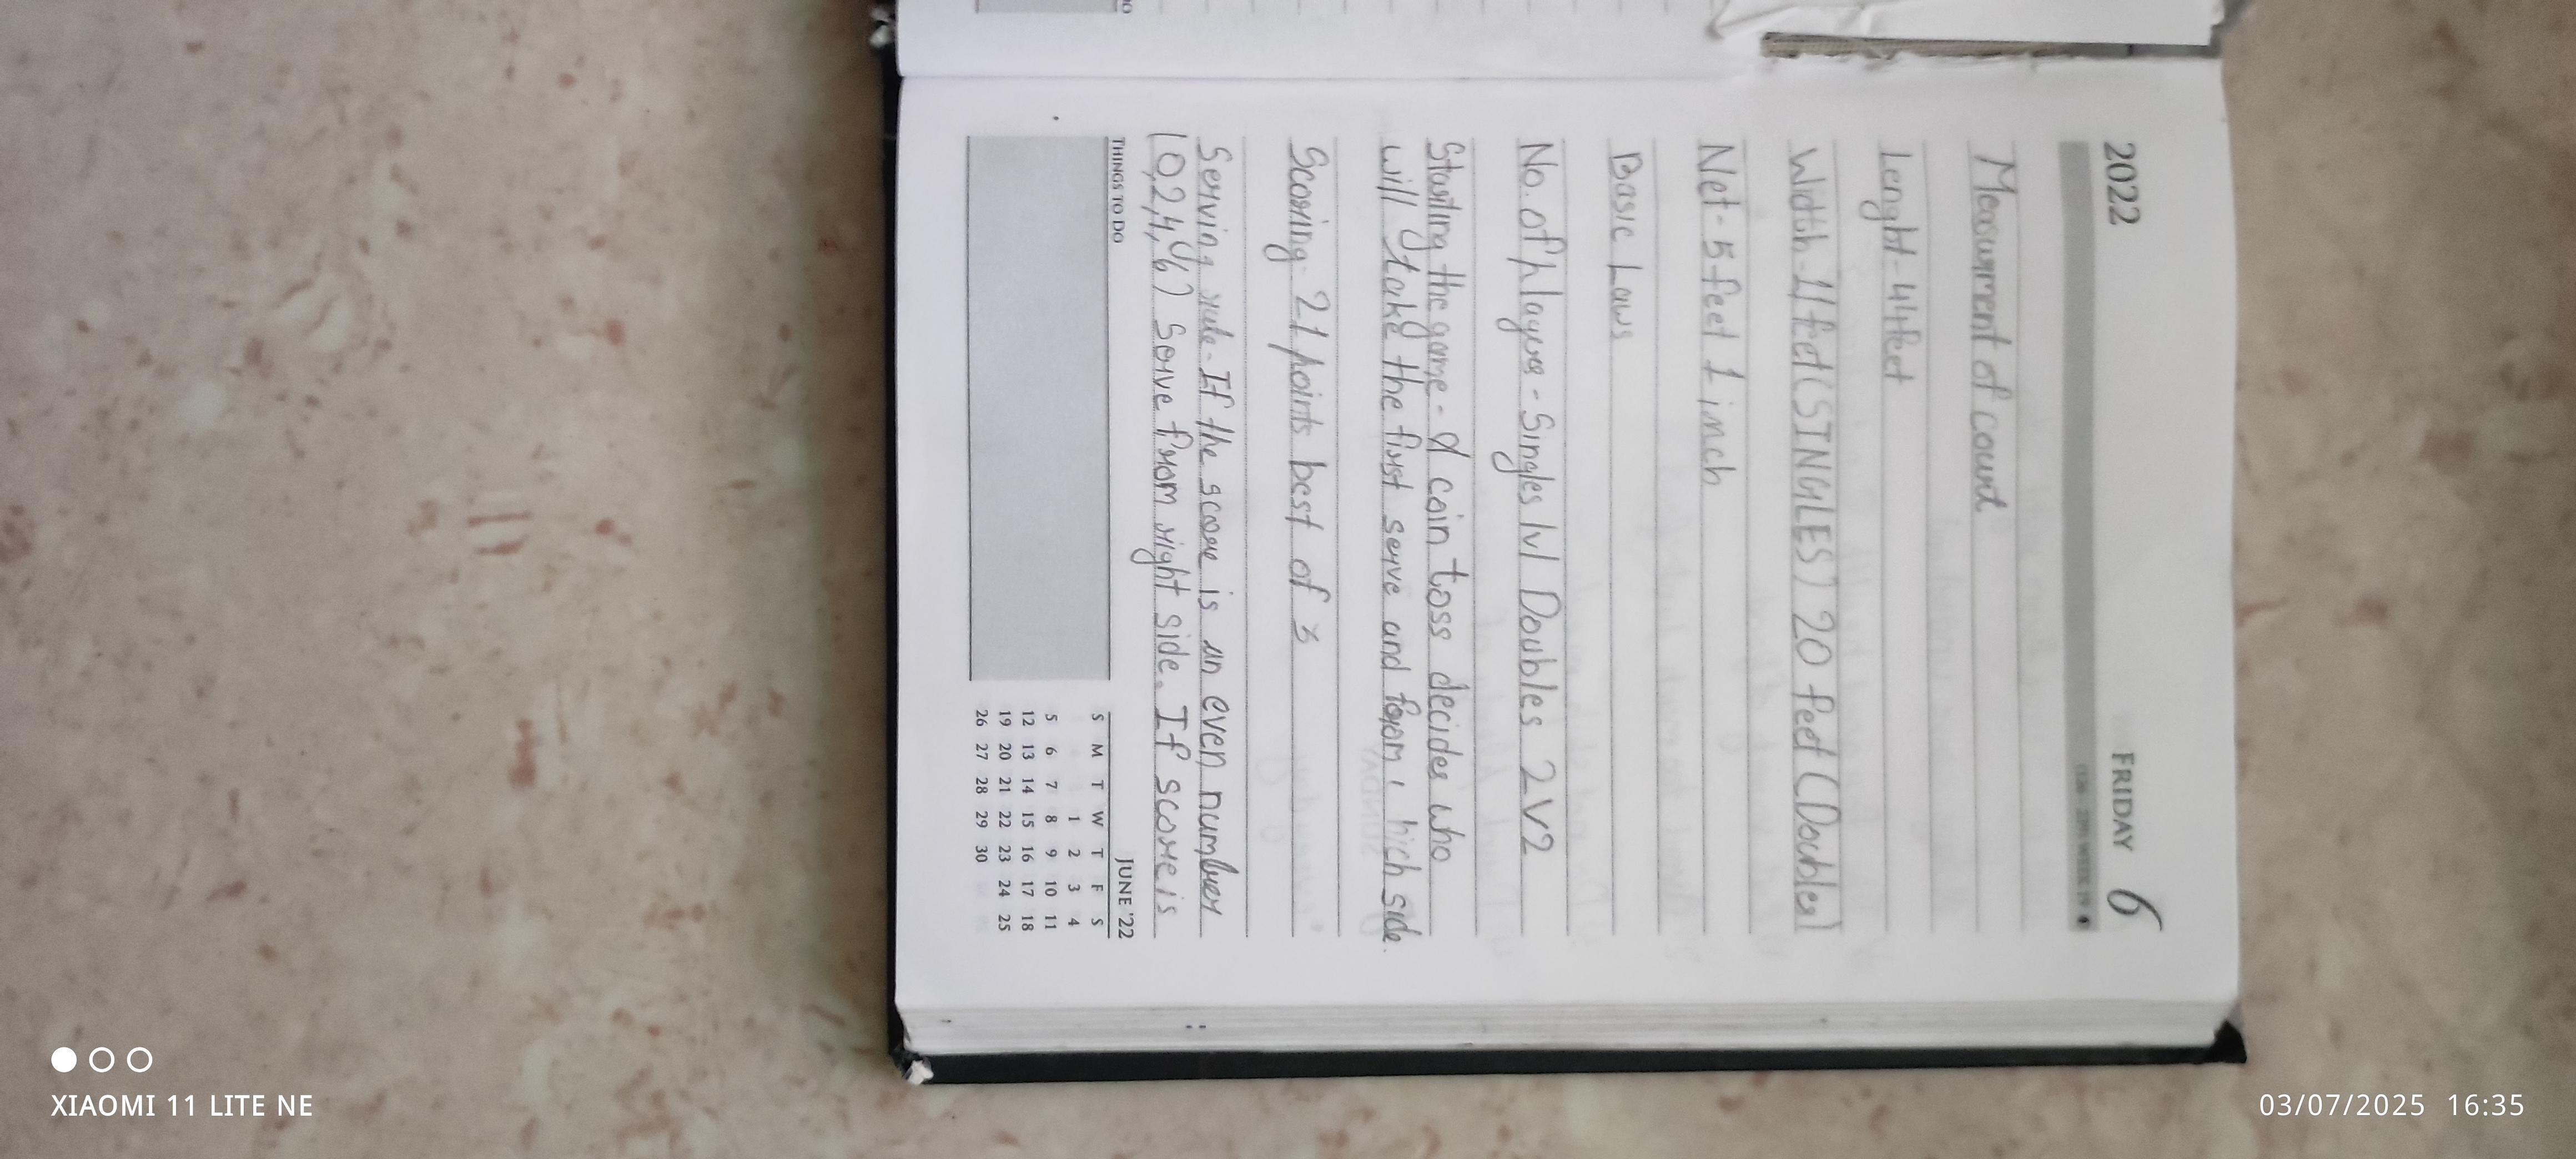 2022 FRIDAY 6
Measurment of court
Lenght - 44 feet
Width - 17 feet (SINGLES) 20 feet (Doubles)
Net - 5 feet 1 inch
Basic Laws
No. of players - Singles 1v1 Doubles 2V2
Starting the game - A coin toss decides who
will take the first serve and from which side.
Scoring - 21 points best of 3
Serving rule - If the score is an even number
(0,2,4,6) Serve from right side. If score is
THINGS TO DO
JUNE '22
S M T W T F S
1 2 3 4
5 6 7 8 9 10 11
12 13 14 15 16 17 18
19 20 21 22 23 24 25
26 27 28 29 30
XIAOMI 11 LITE NE
03/07/2025 16:35